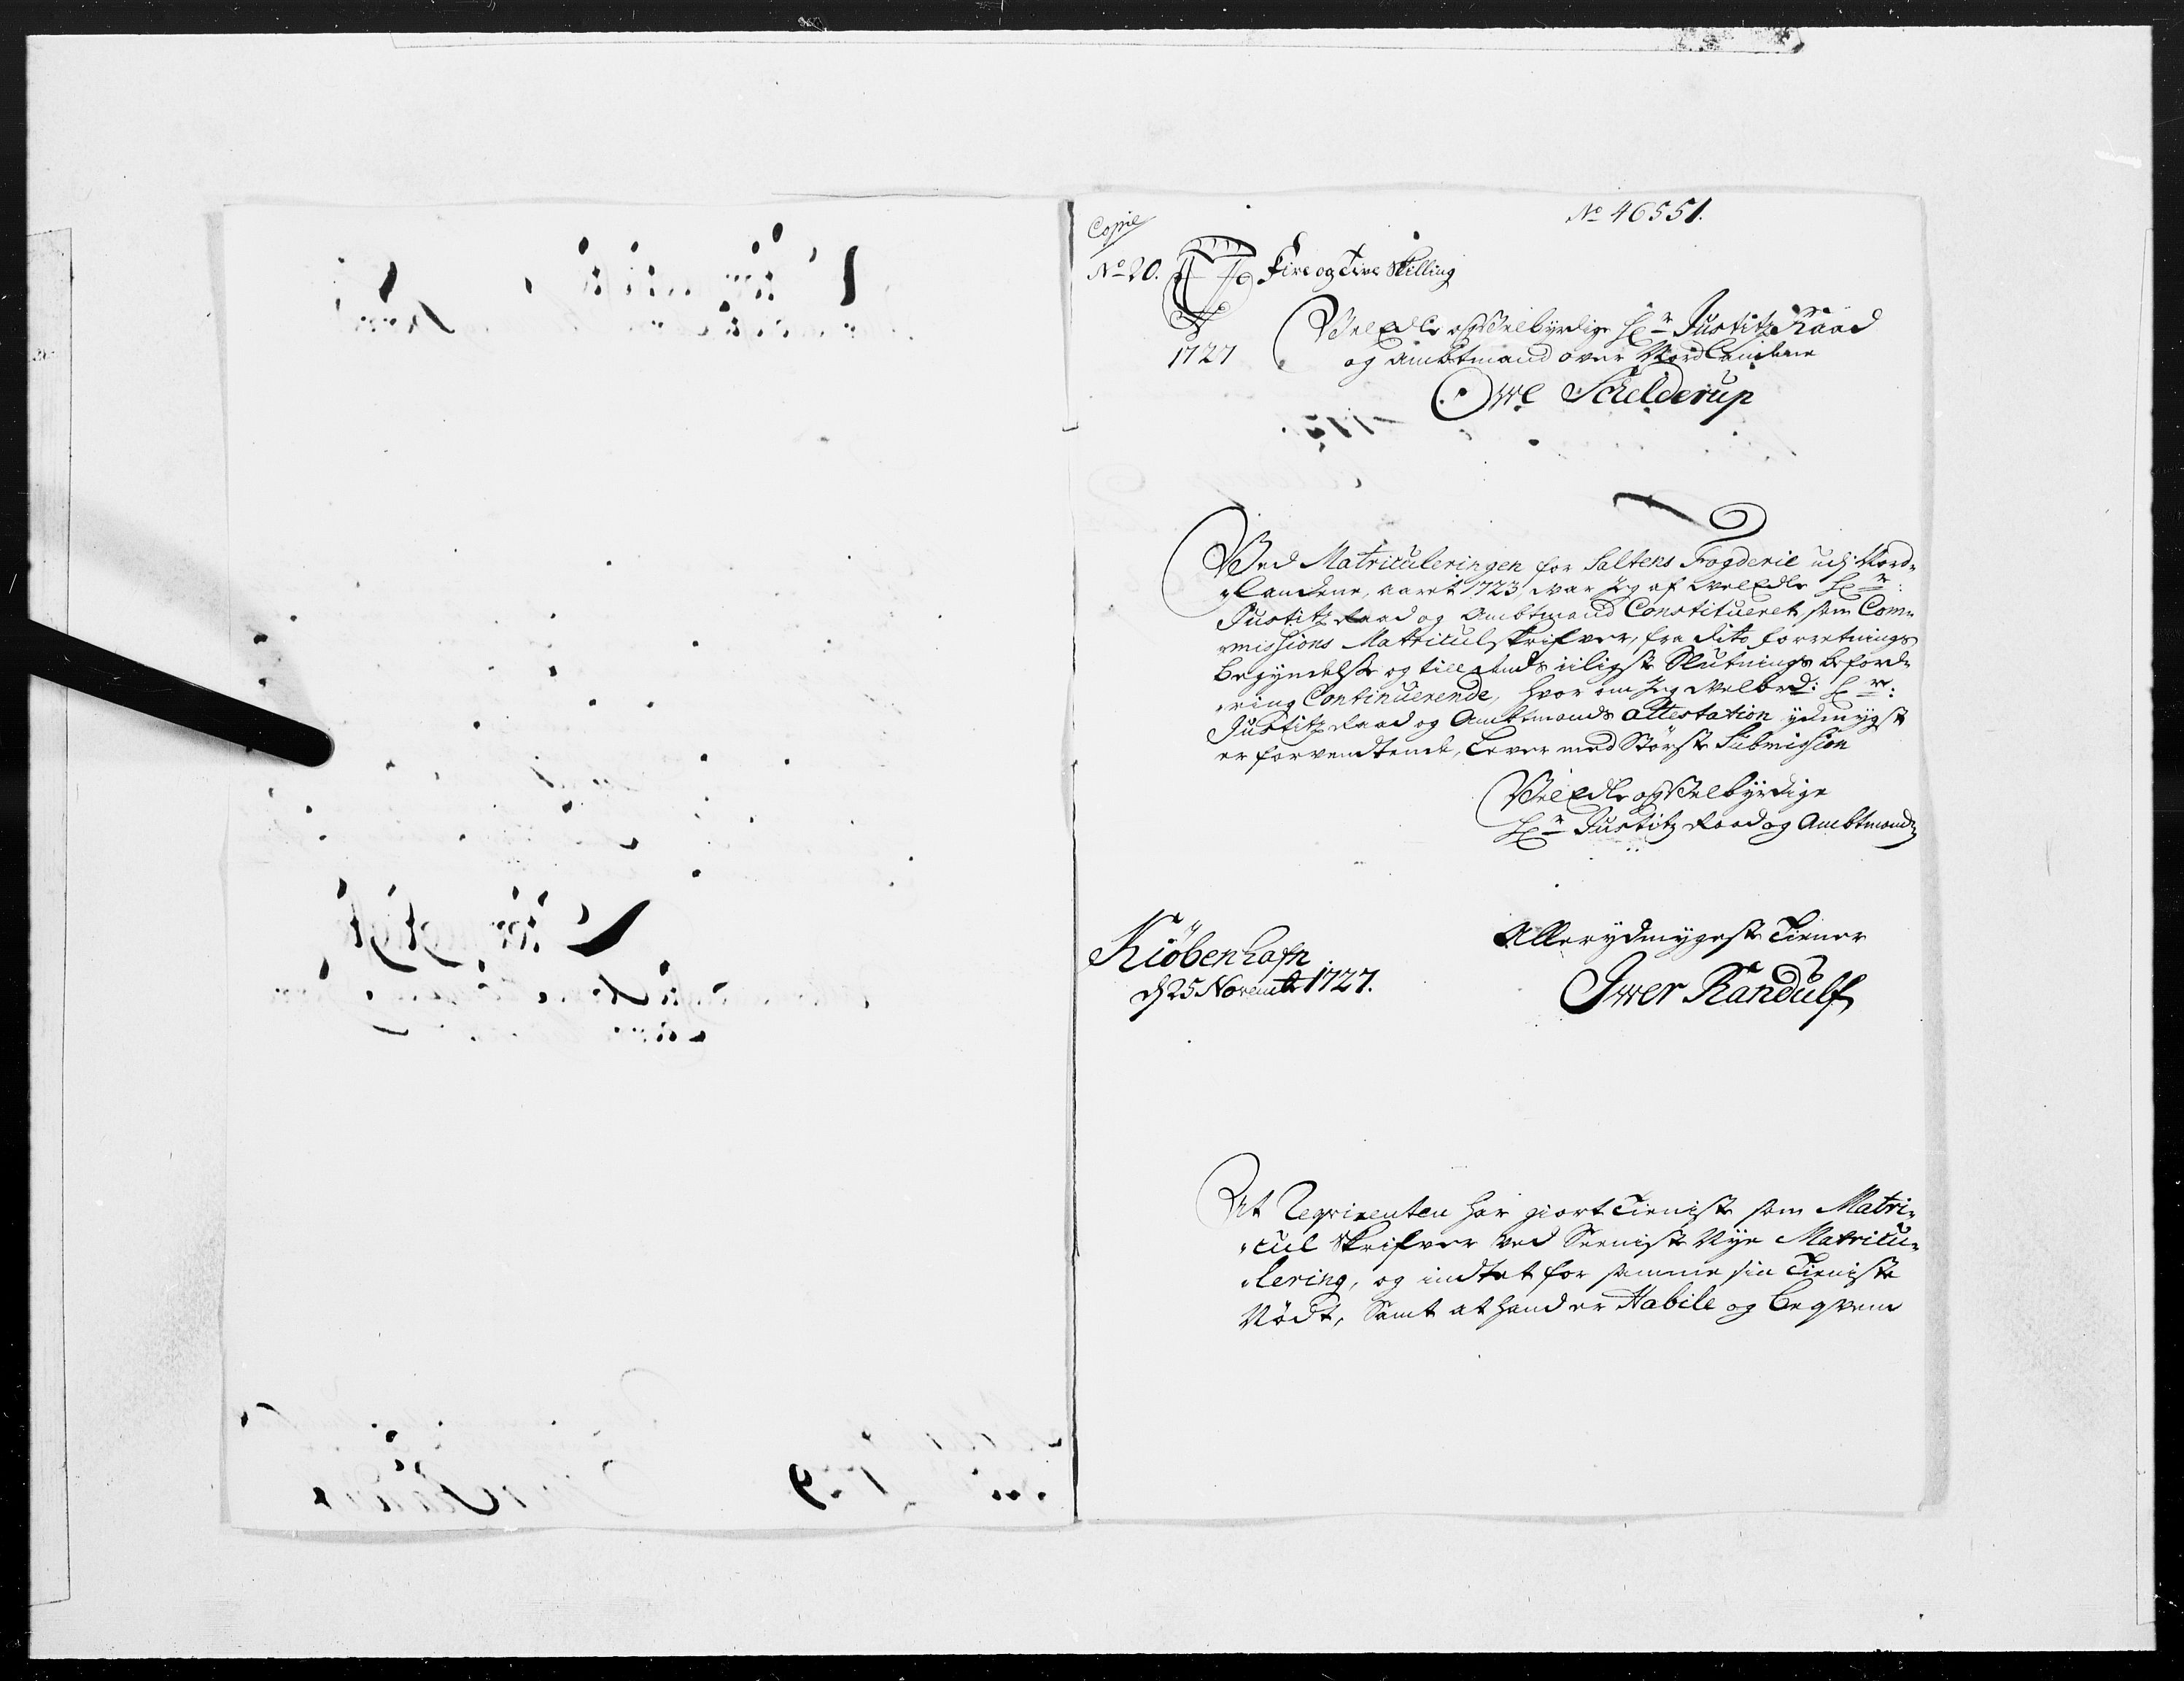 Copie
No 46551.
No 20. Fire og Tive Skilling
1727
VelEdle og Velbyrdige Hr Justitz Raad
og Ambtmand over Nordlandene
Owe Schelderup
Ved Matriculeringen for Saltens Fogderie udj Nord-
landene, aaret 1723, var Jeg af VelEdle Hr:
Justitz Raad og Ambtmand Constitueret som Com-
missions Matriculskrifver, fra dito forretnings
begyndelse og till dends Slutnings beford-
ring Continuerende, hvor om Jeg Velbrd: Hr:
Justitz Raad og Ambtmands attestation ydmygst
er forvendtende, lever med Störste Submission
VelEdle og Velbyrdige
Hr Justitz Raad og Ambtmands
Kiöbenhafn
d 25 Novembr 1727.
Allerydmygeste Tiener
Iwer Randulf
At Reqvirenten har giort Tieniste som Matri-
cul Skrifver ved Seeniste Nye Matricu-
lering, og indtet for samme sin Tieniste
Nödt, Samt at hand er Habile og beqvem